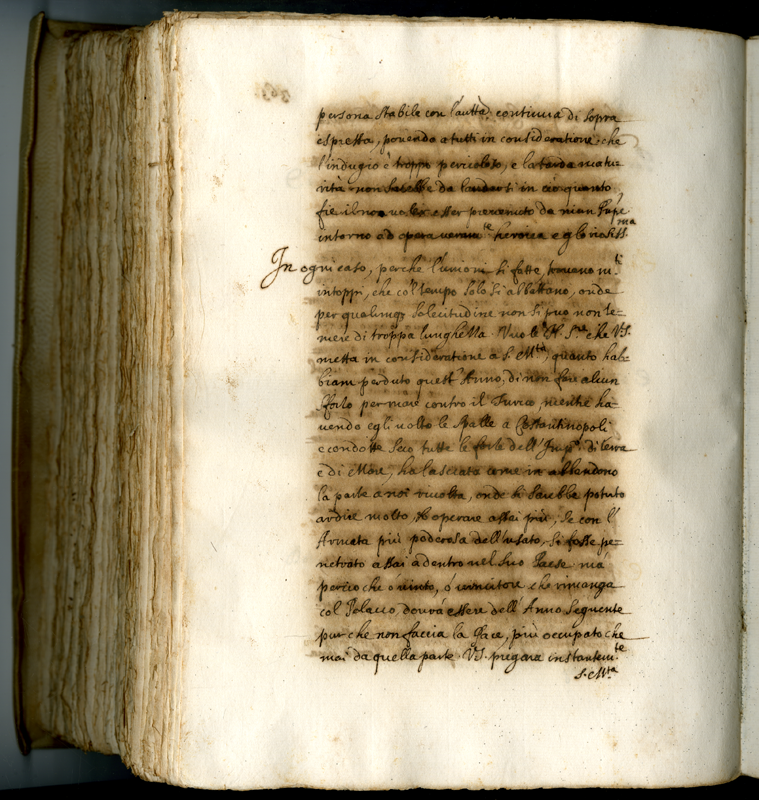 persona stabile con l'auttà continua di sopra
espressa, ponendo a tutti in consideratione, che
l'indugio è troppo pericoloso, e la tarda matu-
rità non sarebbe da lodarsi in ciò quanto
fie il non voler esser prevenuto da niun Pnpe
intorno ad opera veramte heroica e gloriosissma
In ogni caso, perche l'unioni si fatte, trovano mti
intoppi, che col tempo solo si abbattano, onde
per qualunq solecitudine non si può non te-
mere di troppa lunghezza. Vuole N. Sre che VS.
metta in consideratione a S. Mtà, quanto hab-
biam perduto quest'Anno, di non fare alcun
sforzo per mare contro il Turco, mentre ha-
vendo egli volto le spalle à Costantinopoli
e condotte seco tutte le forze dell'Impo di terra
e di Mare, ha lasciata come in abbandono
la parte a noi rivolta, onde si sarebbe potuto
ardire molto, et operare assai più, se con l'
Armata più poderosa dell'usato, si fosse pe-
netrato assai adentro nel suo Paese mà
percioche ò vinto, ò vincitore che rimanga
col Polacco, dovrà essere dell'Anno seguente
pur che non faccia la Pace, più occupato che
mai da quella parte. VS. pregarà instantemte
S. Mtà